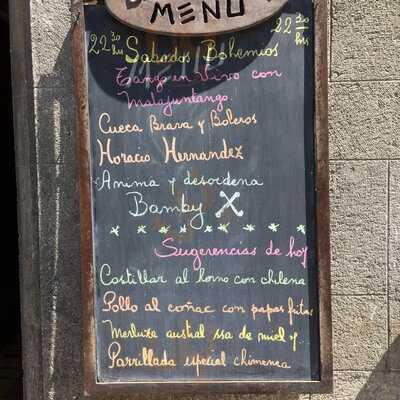 MENU
22 30 hrs
22 30 hrs
Sabados Bohemios
Tango en Vivo con
Malajuntango.
Cueca Brava y Boleros
Horacio Hernandez
Anima y desordena
Bamby X
Sugerencias de hoy
Costillar al horno con chilena
Pollo al coñac con papas fritas
Merluza austral ssa de miel y
Parrillada especial chimenea